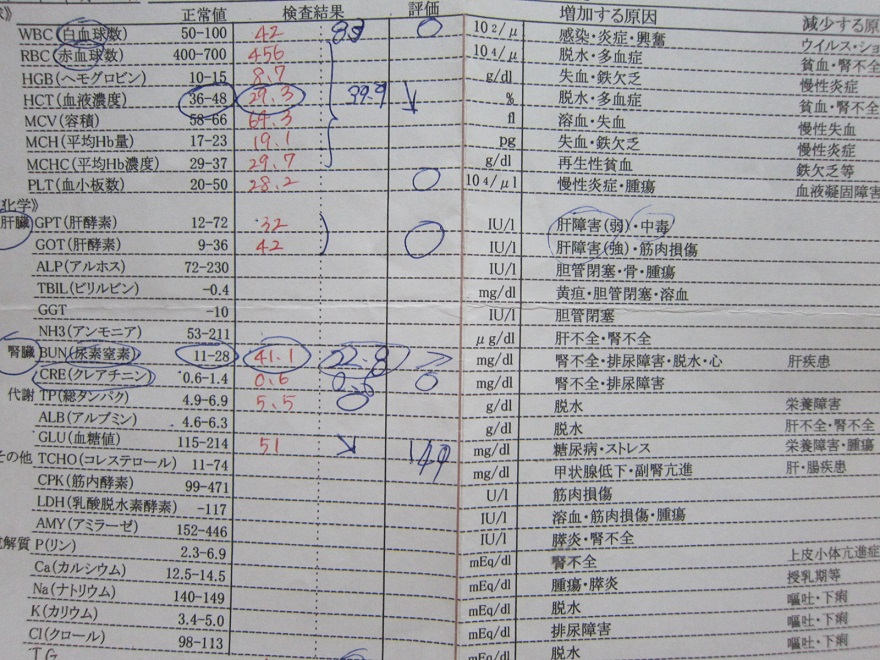 正常値 検査結果 評価 増加する原因 減少する原
WBC(白血球数) 50-100 42 83 ○ 10²/μ 感染・炎症・興奮 ウイルス・ショ
RBC(赤血球数) 400-700 456 10⁴/μ 脱水・多血症 貧血・腎不全
HGB(ヘモグロビン) 10-15 8.7 g/dl 失血・鉄欠乏 慢性炎症
HCT(血液濃度) 36-48 29.3 39.9 ↓ % 脱水・多血症 貧血・腎不全
MCV(容積) 58-66 64.3 fl 溶血・失血 慢性失血
MCH(平均Hb量) 17-23 19.1 pg 失血・鉄欠乏 慢性炎症
MCHC(平均Hb濃度) 29-37 29.7 g/dl 再生性貧血 鉄欠乏等
PLT(血小板数) 20-50 28.2 ○ 10⁴/μl 慢性炎症・腫瘍 血液凝固障害
化学》
肝臓 GPT(肝酵素) 12-72 32 IU/l 肝障害(弱)・中毒
GOT(肝酵素) 9-36 42 ○ IU/l 肝障害(強)・筋肉損傷
ALP(アルホス) 72-230 IU/l 胆管閉塞・骨・腫瘍
TBIL(ビリルビン) -0.4 mg/dl 黄疸・胆管閉塞・溶血
GGT -10 IU/l 胆管閉塞
NH3(アンモニア) 53-211 μg/dl 肝不全・腎不全
腎臓 BUN(尿素窒素) 11-28 41.1 22.8 mg/dl 腎不全・排尿障害・脱水・心 肝疾患
CRE(クレアチニン) 0.6-1.4 0.6 0.6 ○ mg/dl 腎不全・排尿障害
代謝 TP(総タンパク) 4.9-6.9 5.5 ○ g/dl 脱水 栄養障害
ALB(アルブミン) 4.6-6.3 g/dl 脱水 肝不全・腎不全
GLU(血糖値) 115-214 51 ↘ 149 mg/dl 糖尿病・ストレス 栄養障害・腫瘍
その他 TCHO(コレステロール) 11-74 mg/dl 甲状腺低下・副腎亢進 肝・腸疾患
CPK(筋内酵素) 99-471 U/l 筋肉損傷
LDH(乳酸脱水素酵素) -117 IU/l 溶血・筋肉損傷・腫瘍
AMY(アミラーゼ) 152-446 IU/l 膵炎・腎不全
電解質 P(リン) 2.3-6.9 mEq/dl 腎不全 上皮小体亢進症
Ca(カルシウム) 12.5-14.5 mEq/dl 腫瘍・膵炎 授乳期等
Na(ナトリウム) 140-149 mEq/dl 脱水 嘔吐・下痢
K(カリウム) 3.4-5.0 mEq/dl 排尿障害 嘔吐・下痢
Cl(クロール) 98-113 mEq/dl 脱水 嘔吐・下痢